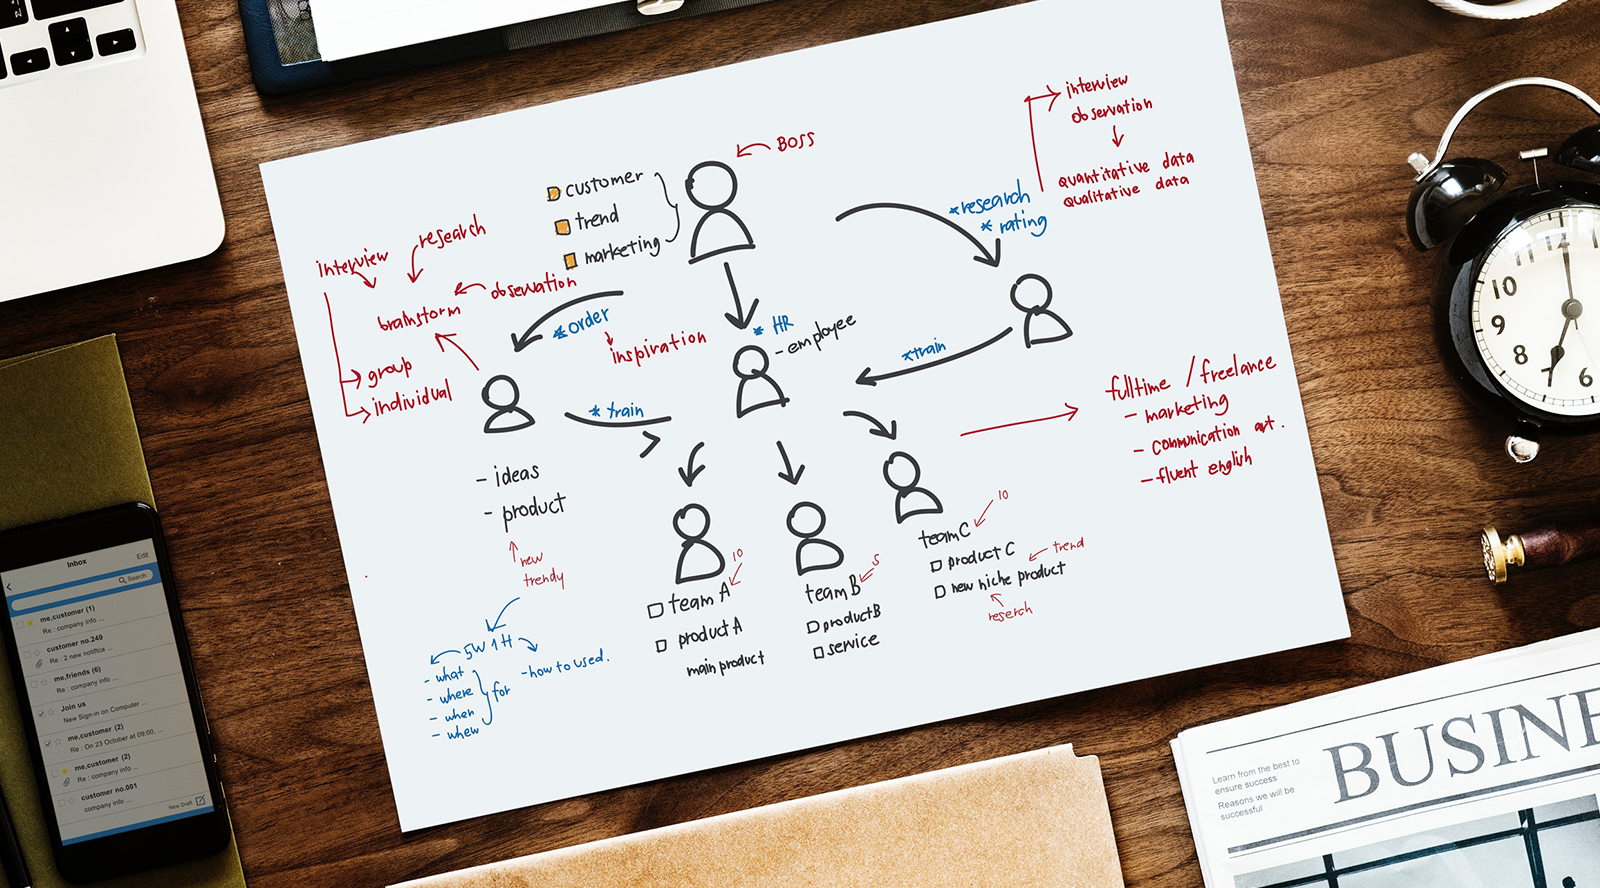 BOSS
customer
trend
marketing
interview
observation
quantitative data
qualitative data
*research
* rating
research
interview
observation
brainstorm
*order
inspiration
* HR
- employee
*train
group
individual
* train
fulltime / freelance
- marketing
- communication art.
- fluent english
- ideas
- product
new
trendy
5W 1H
- what
- where
- when
- whew
for
- how to used.
10
team A
product A
main product
5
team B
product B
service
10
team C
product C
trend
new niche product
reserch
Inbox
Edit
Search
me,customer (1)
Re : company info ...
customer no.249
Re : 2 new notifica ...
me,friends (6)
Re : company info ...
Join us
New Sign-in on Computer ...
me,customer (2)
Re : On 23 October at 09:00. ...
me,customer (2)
Re : company info ...
customer no.001
company info ...
New Draft
10
9
8
6
Learn from the best to
ensure success
Reasons we will be
successful
BUSINE